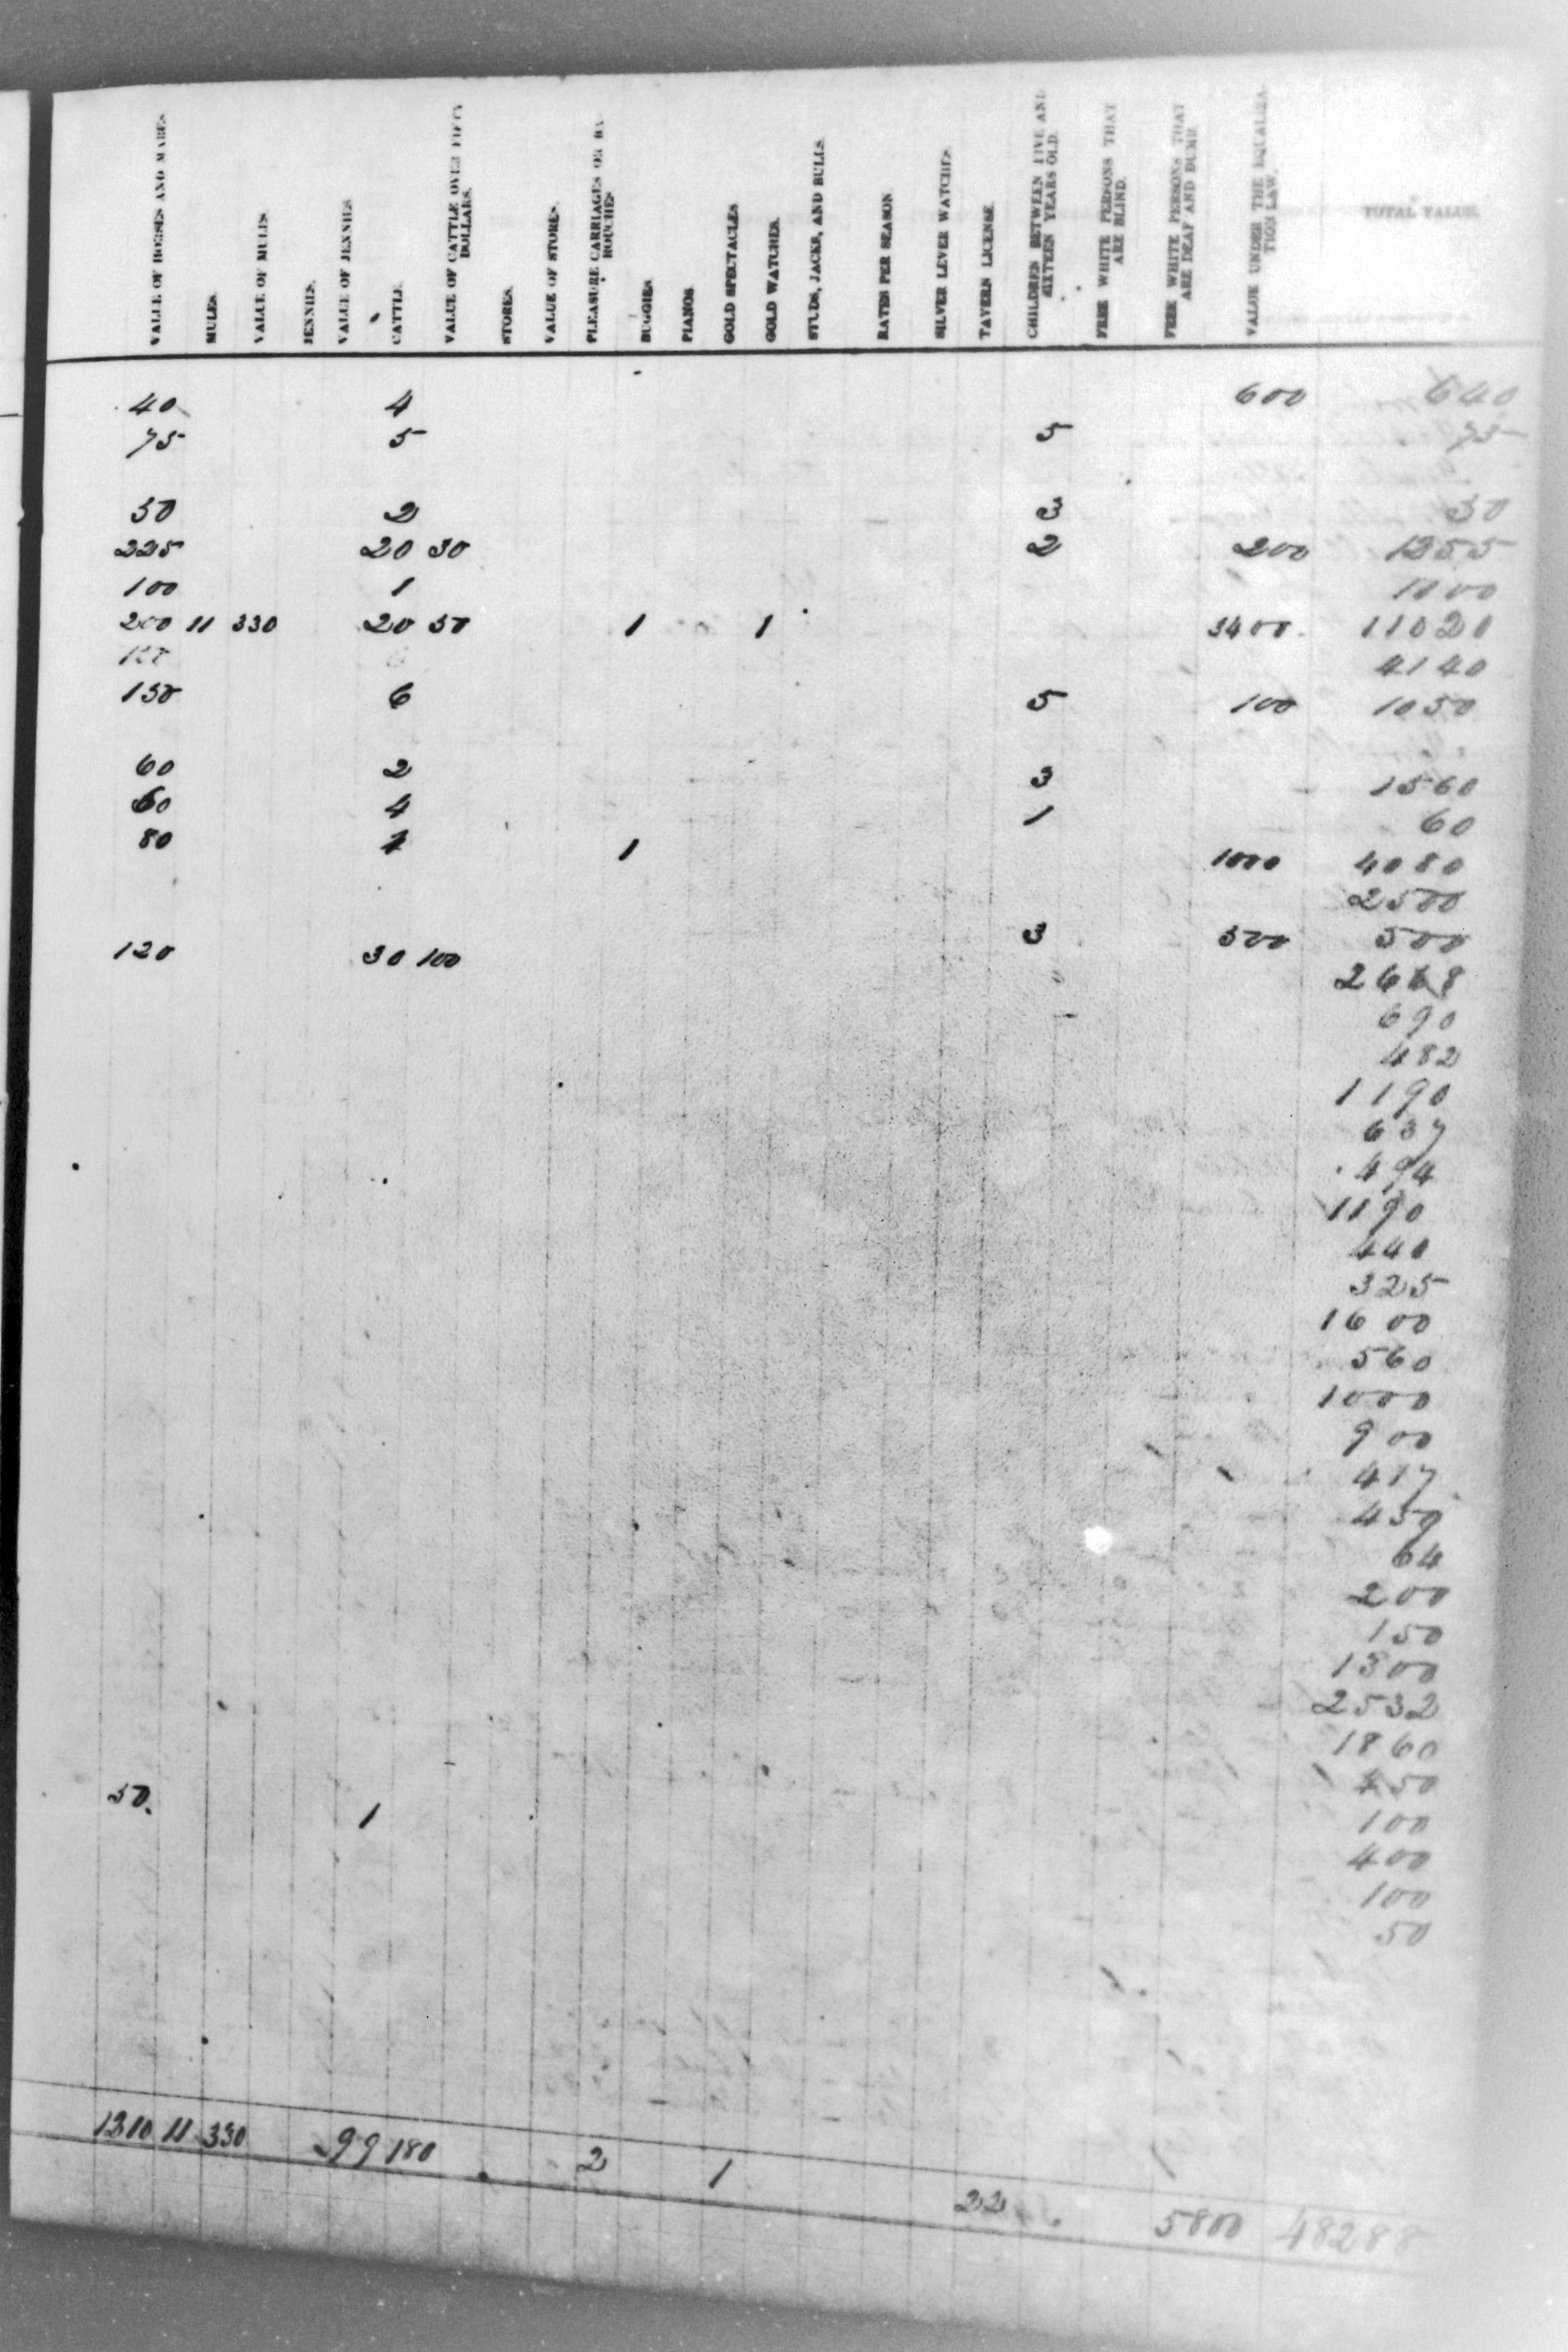 VALUE OF HORSES AND MARES MULES VALUE OF MULES. JENNIES. VALUE OF JENNIES. CATTLE. VALUE OF CATTLE OVER FIFTY DOLLARS. STORES. VALUE OF STORES. PLEASURE CARRIAGES OR BAROUCHES BUGGIES. PIANOS GOLD SPECTACLES GOLD WATCHES. STUDS, JACKS, AND BULLS. RATES PER SEASON SILVER LEVER WATCHES. TAVERN LICENSE CHILDREN BETWEEN FIVE AND SIXTEEN YEARS OLD. FREE WHITE PERSONS THAT ARE BLIND. FREE WHITE PERSONS THAT ARE DEAF AND DUMB. VALUE UNDER THE EQUALIZATION LAW. TOTAL VALUE.
40 4 600 640
75 5 5 75
50 2 3 50
225 20 30 2 200 1255
100 1 1100
200 11 330 20 50 1 1 3400 11020
4140
150 6 5 100 1050
60 2 3 1560
60 4 1 60
80 1 1000 4080
2500
3 500 500
120 30 100 2668
690
482
1190
637
494
1190
440
325
1600
560
1000
900
417
459
64
200
150
1300
2532
1860
450
50 1 100
400
100
50
1310 11 330 99 180 2 1 22 5800 48288